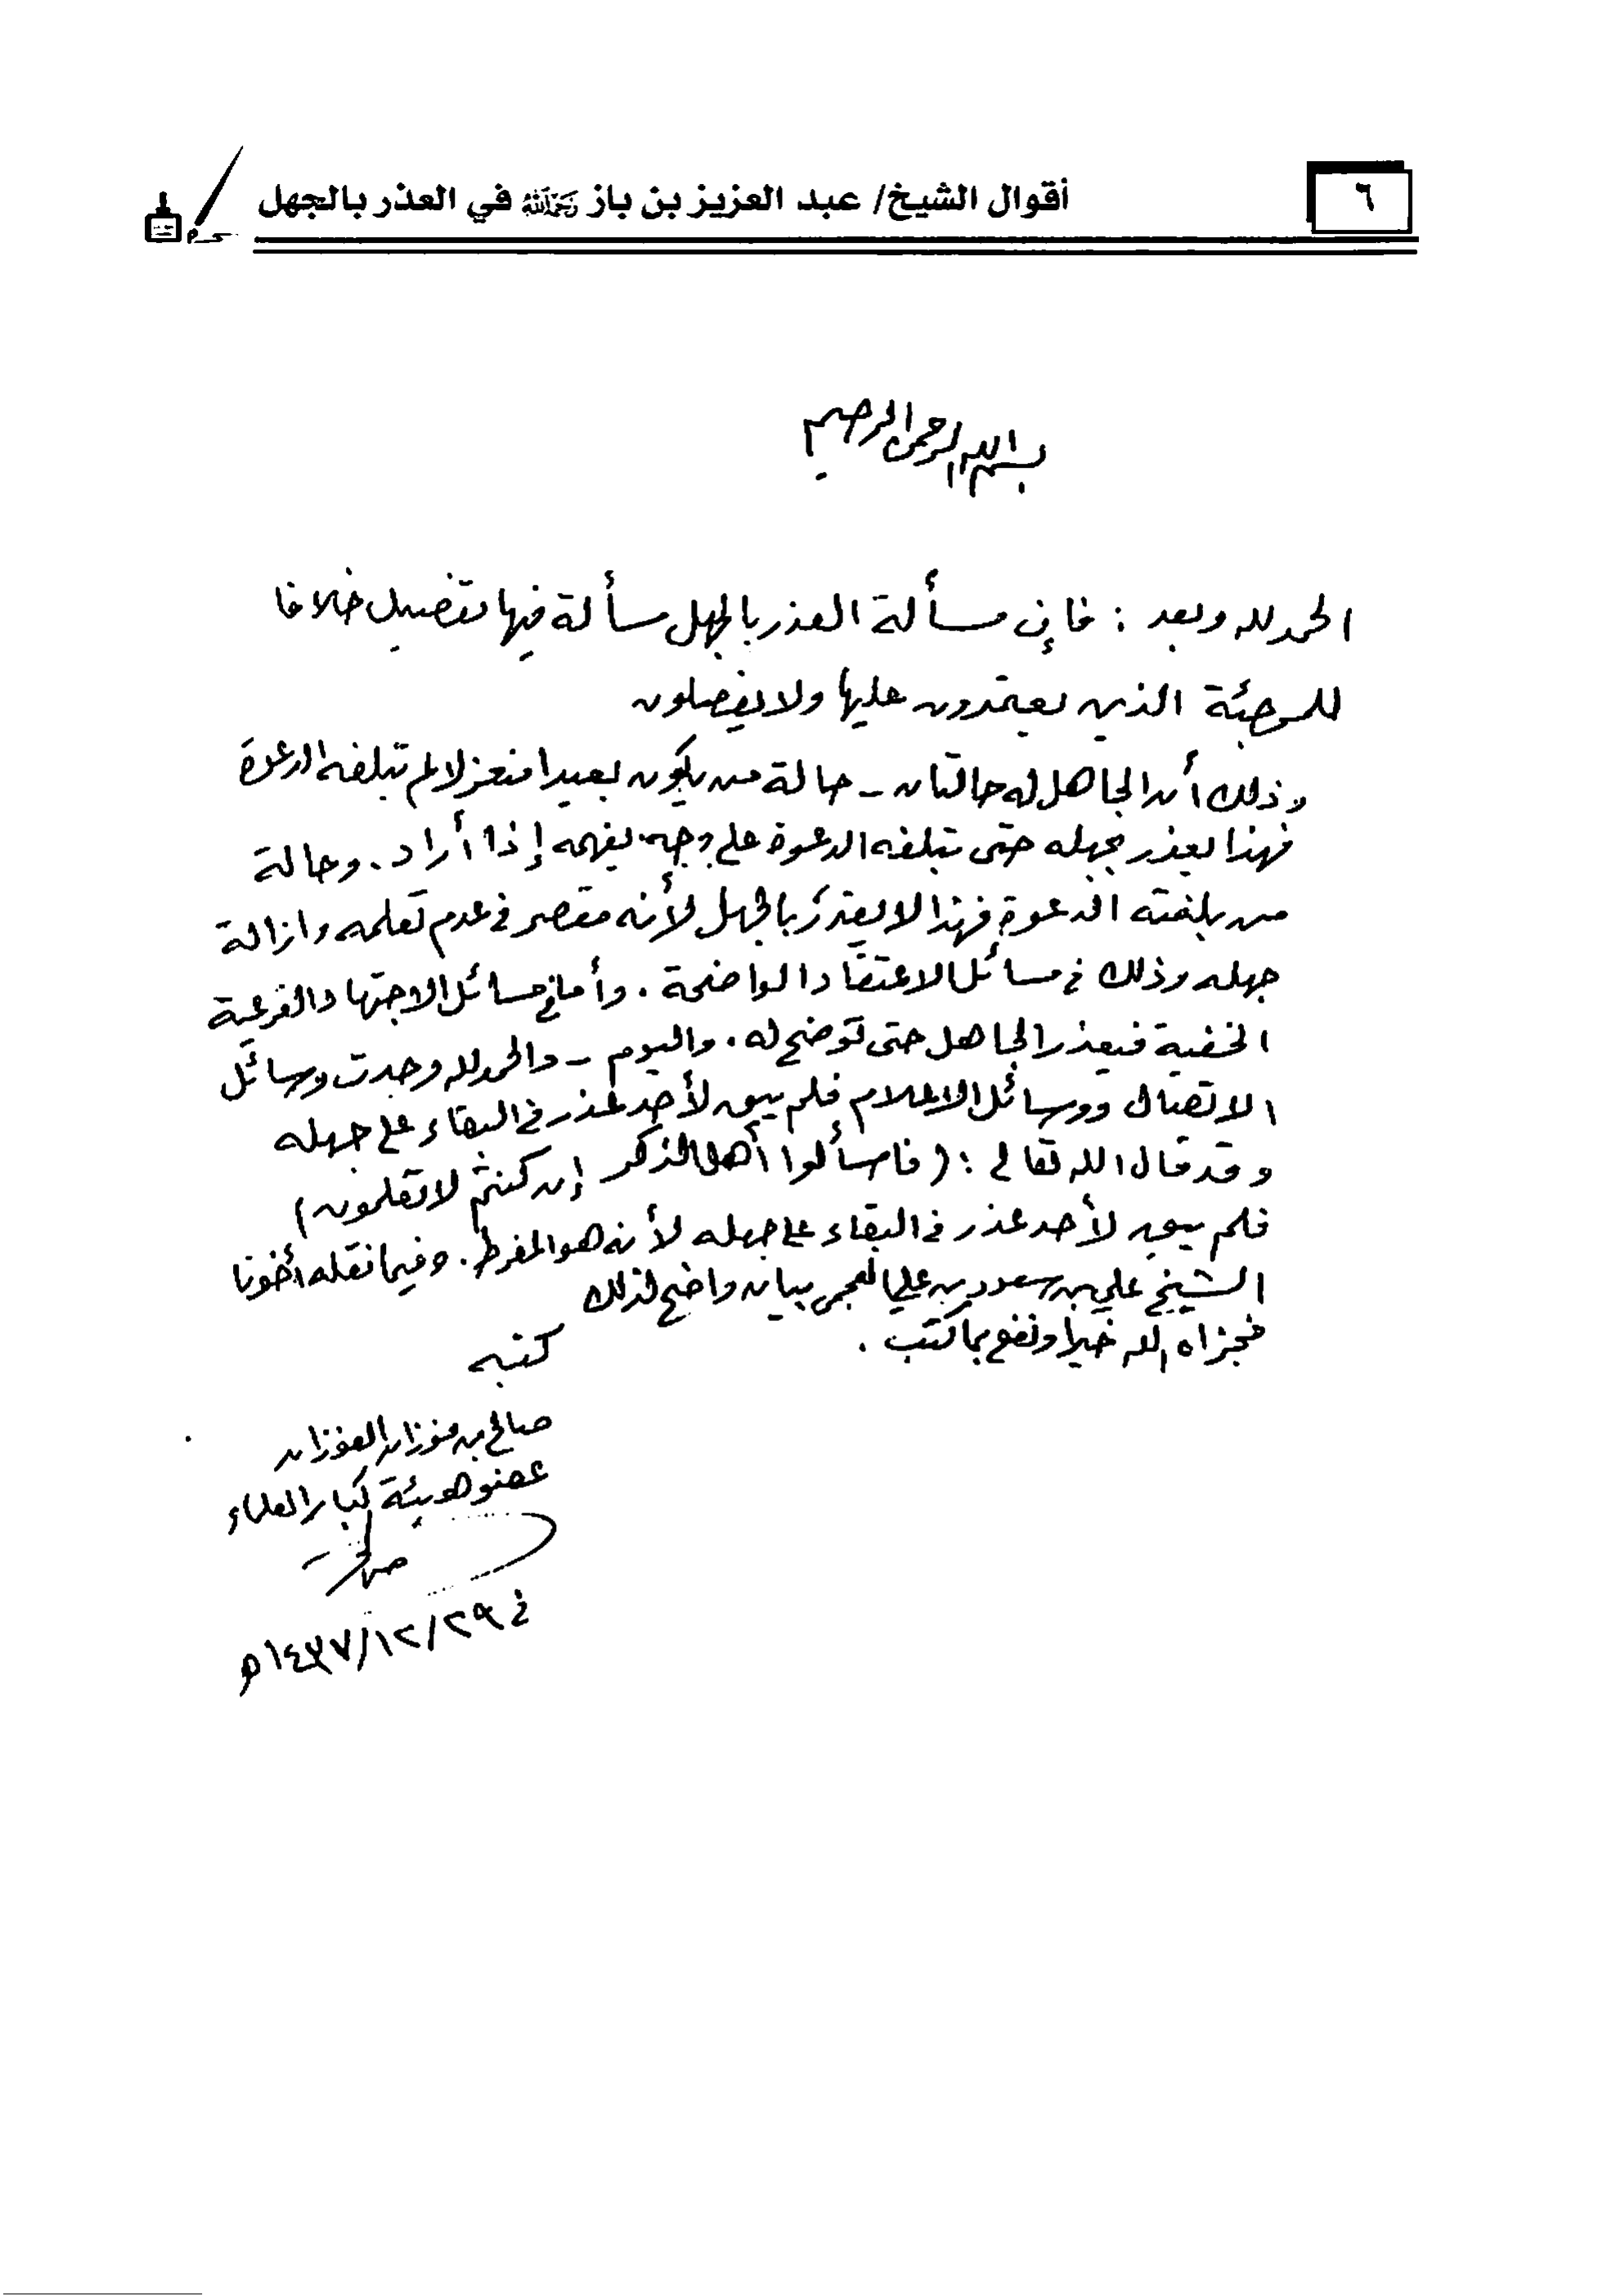 ٦
أقوال الشيخ/ عبد العزيز بن باز رحمه الله في العذر بالجهل
بسم الله الرحمن الرحيم
الحمد لله وبعد : فإن مسألة العذر بالجهل مسألة فيها تفصيل خلافا
للمرجئة الذين يعتمدون عليها ولا يفصلون
وذلك أن الجاهل له حالتان - حالة من يكون بعيدا منعزلا لم تبلغه الدعوة
فهذا يعذر بجهله حتى تبلغه الدعوة على وجه يفهمه إذا أراد . وحالة
من بلغته الدعوة فهذا لا يعذر بالجهل لأنه مقصر في عدم تعلمه وازالة
جهله وذلك في مسائل الاعتقاد الواضحة . وأما في مسائل الاجتهاد الفرعية
الخفية فيعذر الجاهل حتى توضح له . واليوم - والحمد لله وجدت وسائل
الاتصال ووسائل الإعلام فلم يبق لأحد عذر في البقاء على جهله
وقد قال الله تعالى : ( فاسألوا أهل الذكر إن كنتم لا تعلمون )
فلم يبق لأحد عذر في البقاء على جهله لأنه هو المفرط . وفيما نقله أخونا
الشيخ علي بن سعود بن علي العجمي بيان واضح لذلك
فجزاه الله خيرا ونفع بما كتب .
كتبه
صالح بن فوزان الفوزان
عضو هيئة كبار العلماء
في ١٤٣٧/١٢/٢٩هـ